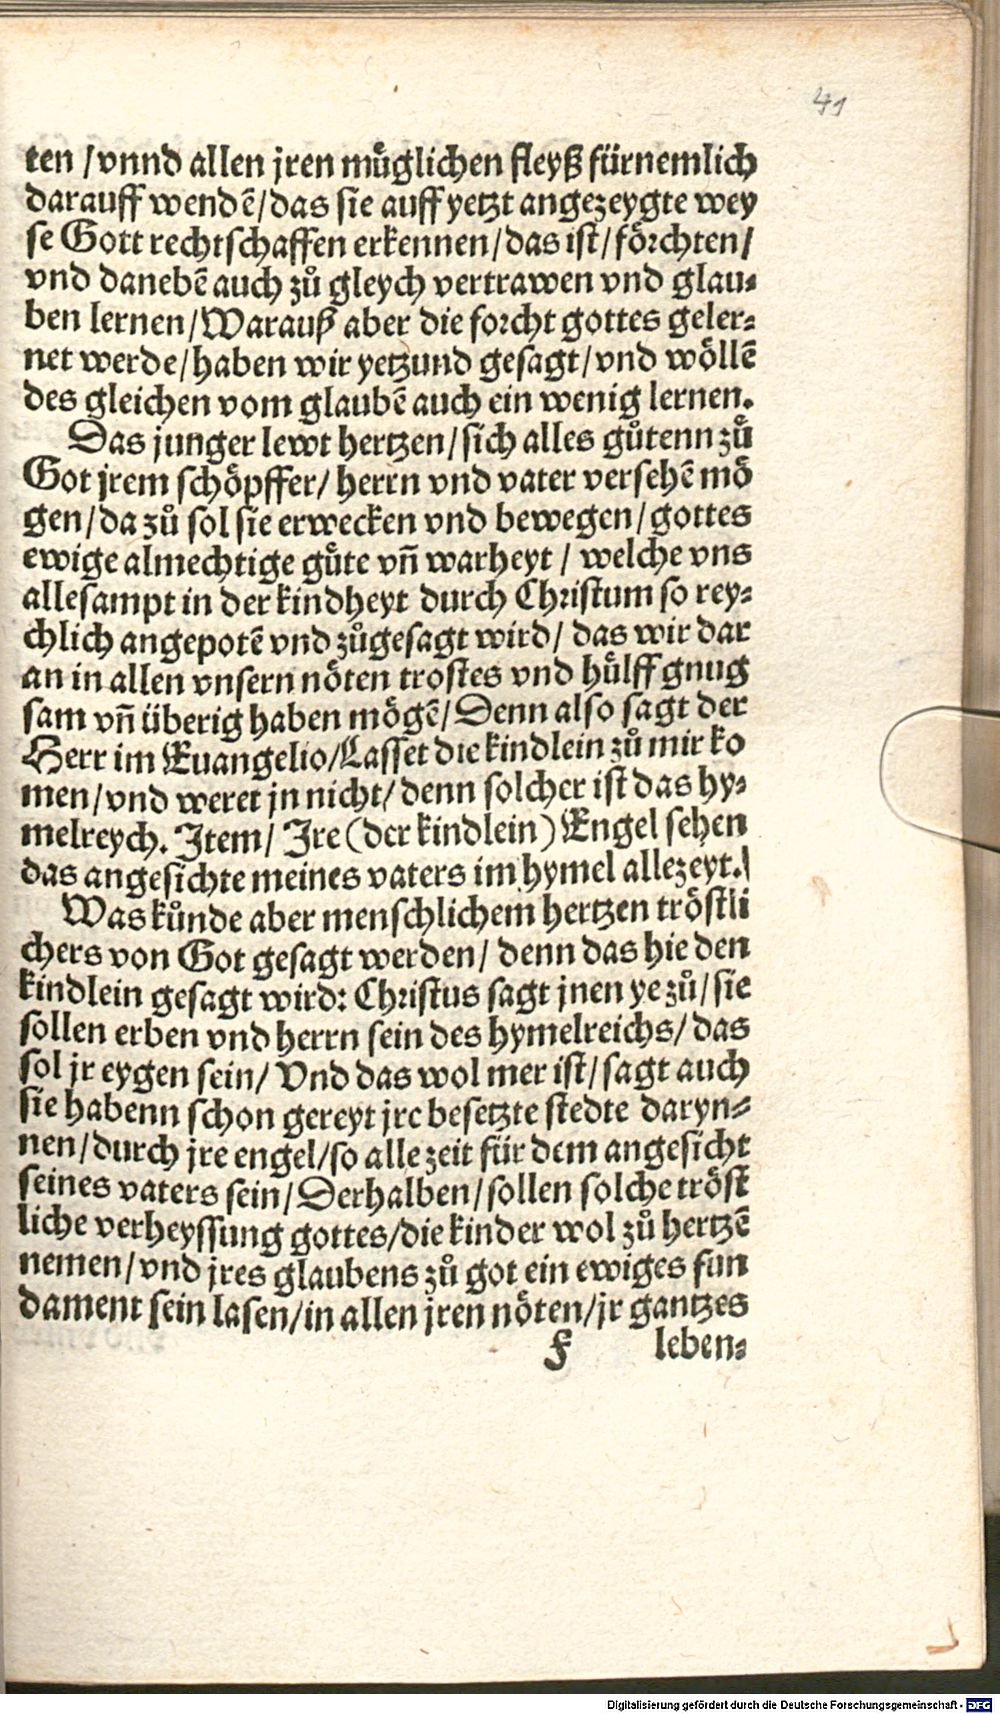 41
ten / vnnd allen jren muͤglichen fleyß fürnemlich
darauff wendē / das sie auff yetzt angezeygte wey
se Gott rechtschaffen erkennen / das ist / foͤrchten /
vnd danebē auch zuͦ gleych vertrawen vnd glau⸗
ben lernen / Warauß aber die forcht gottes geler⸗
net werde / haben wir yetzund gesagt / vnd woͤllē
des gleichen vom glaubē auch ein wenig lernen.
Das junger lewt hertzen / sich alles guͦtenn zuͦ
Got jrem schoͤpffer / herrn vnd vater versehē moͤ
gen / da zuͦ sol sie erwecken vnd bewegen / gottes
ewige almechtige guͤte vn̄ warheyt / welche vns
allesampt in der kindheyt durch Christum so rey⸗
chlich angepotē vnd zuͦgesagt wird / das wir dar
an in allen vnsern noͤten trostes vnd huͤlff gnug
sam vn̄ überig haben moͤgē / Denn also sagt der
Herr im Euangelio / Lasset die kindlein zuͦ mir ko
men / vnd weret jn nicht / denn solcher ist das hy⸗
melreych. Item / Ire (der kindlein) Engel sehen
das angesichte meines vaters im hymel allezeyt.
Was kuͦnde aber menschlichem hertzen troͤstli
chers von Got gesagt werden / denn das hie den
kindlein gesagt wird: Christus sagt jnen ye zuͦ / sie
sollen erben vnd herrn sein des hymelreichs / das
sol jr eygen sein / Vnd das wol mer ist / sagt auch
sie habenn schon gereyt jre besetzte stedte daryn⸗
nen / durch jre engel / so alle zeit für dem angesicht
seines vaters sein / Derhalben / sollen solche troͤst
liche verheyssung gottes / die kinder wol zuͦ hertzē
nemen / vnd jres glaubens zuͦ got ein ewiges fun
dament sein lasen / in allen jren noͤten / jr gantzes
F leben⸗
Digitalisierung gefördert durch die Deutsche Forschungsgemeinschaft - DFG